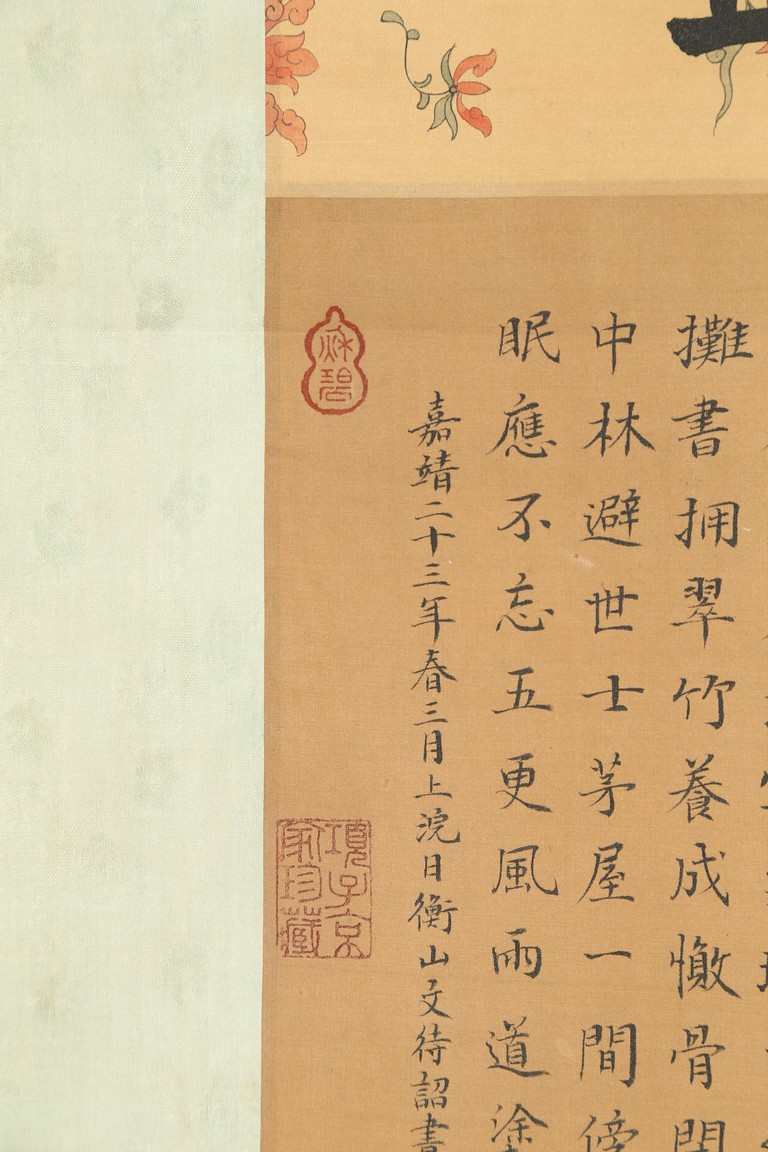 攤書拥翠竹養成憿骨閒
中林避世士茅屋一間傍
眠應不忘五更風雨道塗
嘉靖二十三年春三月上浣日衡山文待詔書
項子京家珍藏